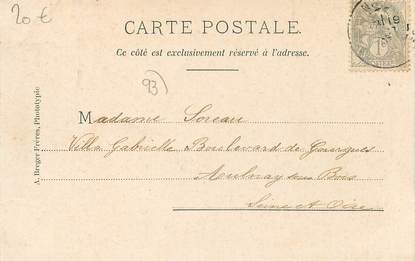 20 €
CARTE POSTALE.
Ce côté est exclusivement réservé à l'adresse.
93
Madame Soreau
Villa Gabrielle Boulevard de Gourgues
Aulnay sous Bois
Seine et Oise
A. Breger Frères, Phototypie